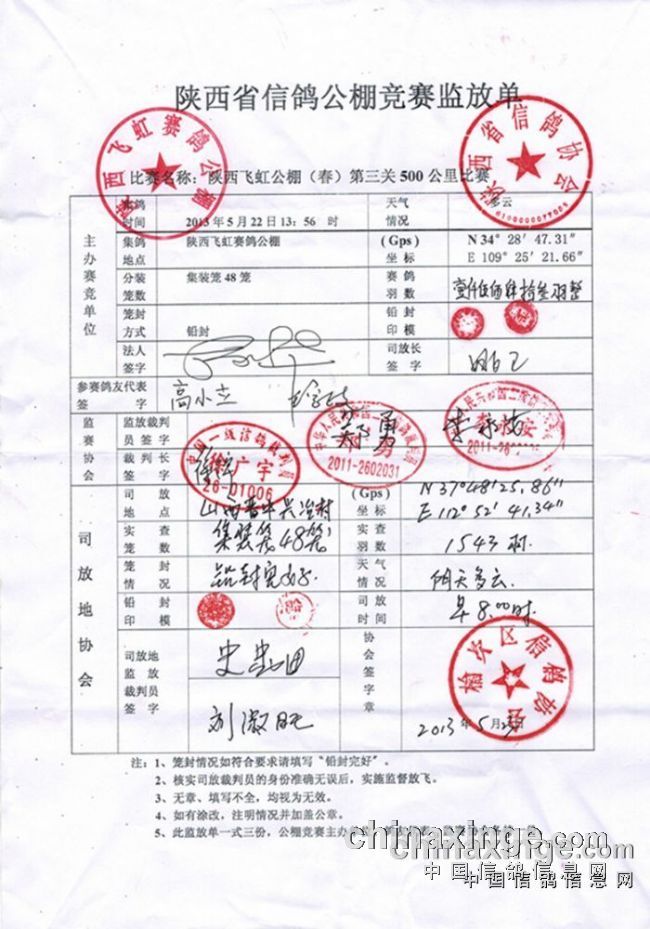 陕西省信鸽公棚竞赛监放单
比赛名称：陕西飞虹公棚（春）第三关 500 公里比赛
主办赛竞单位
集鸽时间 2013 年 5 月 22 日 13：56 时
天气情况 多云
集鸽地点 陕西飞虹赛鸽公棚
(Gps)坐标 N 34° 28′ 47.31″ E 109° 25′ 21.66″
分装笼数 集装笼 48 笼
赛鸽羽数 壹仟伍佰肆拾叁羽整
笼封方式 铅封
铅封印模
法人签字
司放长签字
参赛鸽友代表签字 高小立
监赛协会
监放裁判员签字
裁判长签字
司放地协会
司放地点 山西晋中兴冶村
(Gps)坐标 N37°48′25.86″ E112°52′41.34″
实查笼数 集装笼48笼
实查羽数 1543羽.
笼封情况 铅封完好.
天气情况 阴天多云.
铅封印模
司放时间 早8:00时.
司放地监放裁判员签字 史忠田
刘淑旺
协会签字章
2013 年 5 月 23 日
陕西飞虹赛鸽公棚
陕西省信鸽协会
6100000077005
中国一级信鸽裁判员
徐广宇
26-01006
2011-2602031
2011-26
榆次区信鸽协会
注：1、笼封情况如符合要求请填写“铅封完好”。
2、核实司放裁判员的身份准确无误后，实施监督放飞。
3、无章、填写不全，均视为无效。
4、如有涂改，注明情况并加盖公章。
5、此监放单一式三份，公棚竞赛主办
chinaxinge.com
中国信鸽信息网